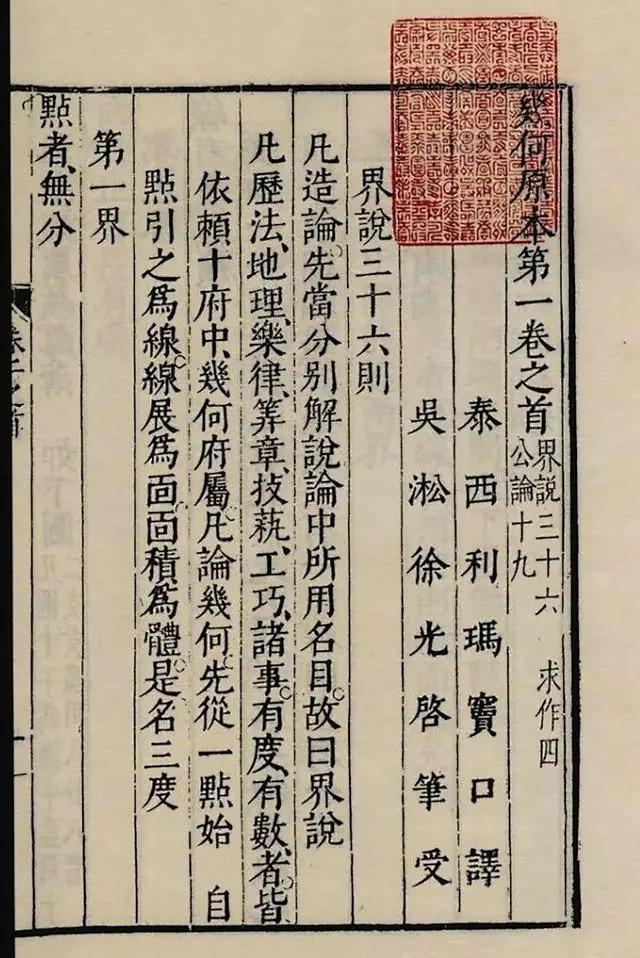 幾何原本第一卷之首 界說三十六 求作四
公論十九
泰西利瑪竇口譯
吳淞徐光啓筆受
界說三十六則
凡造論。先當分別解說論中所用名目。故曰界說
凡歷法、地理、樂律、筭章、技蓺、工巧、諸事。有度、有數、者。皆
依賴十府中、幾何府屬。凡論幾何。先從一點始 自
點引之爲線。線展爲面。面積爲體。是名三度
第一界
點者、無分